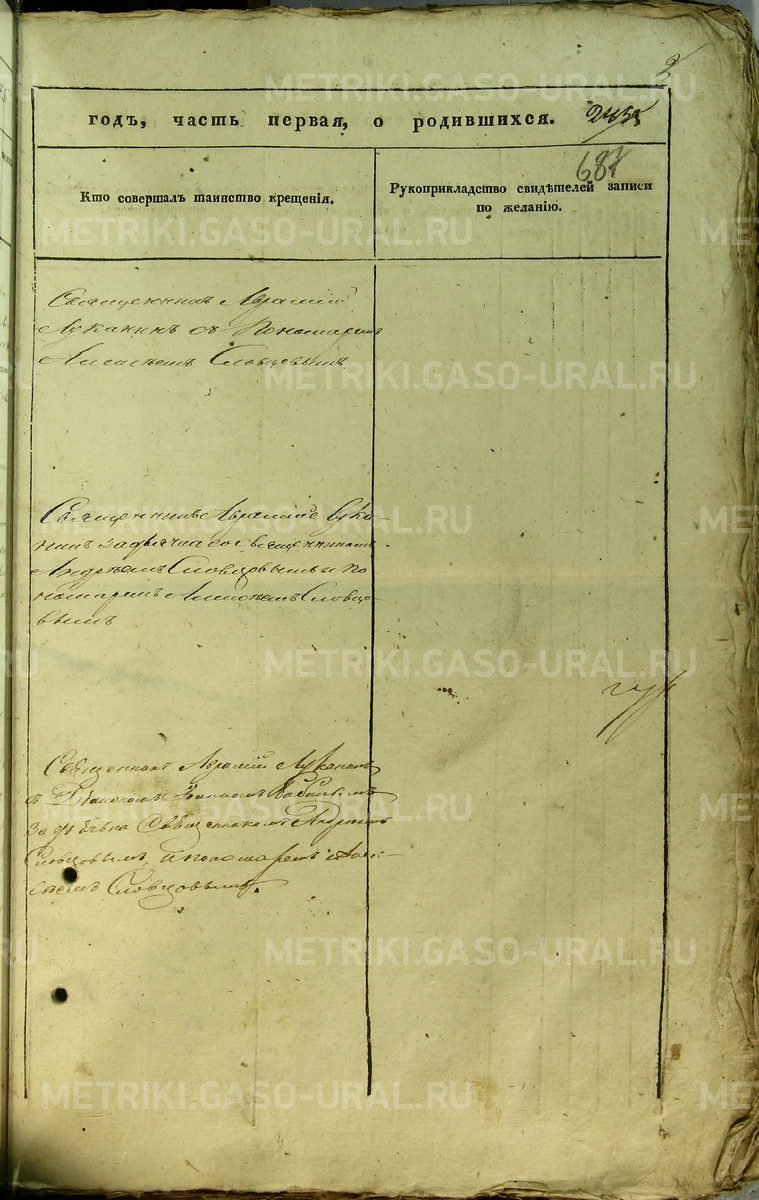 2
годъ, часть первая, о родившихся.
687
Кто совершалъ таинство крещенія.
Рукоприкладство свидѣтелей записи
по желанію.
Священникъ Аврамій
Луканинъ съ Пономаремъ
Алексѣемъ Словцовымъ.
Священникъ Аврамій Лука-
нинъ за дьячка со священникомъ
Андреемъ Словцовымъ и по
номаремъ Алексѣемъ Словцо
вымъ
Священникъ Аврамій Луканинъ
съ Діакономъ Іоанномъ
за дьячка Священникомъ Андреемъ
Словцовымъ и пономаремъ Алек-
сѣемъ Словцовымъ.
METRIKI.GASO-URAL.RU